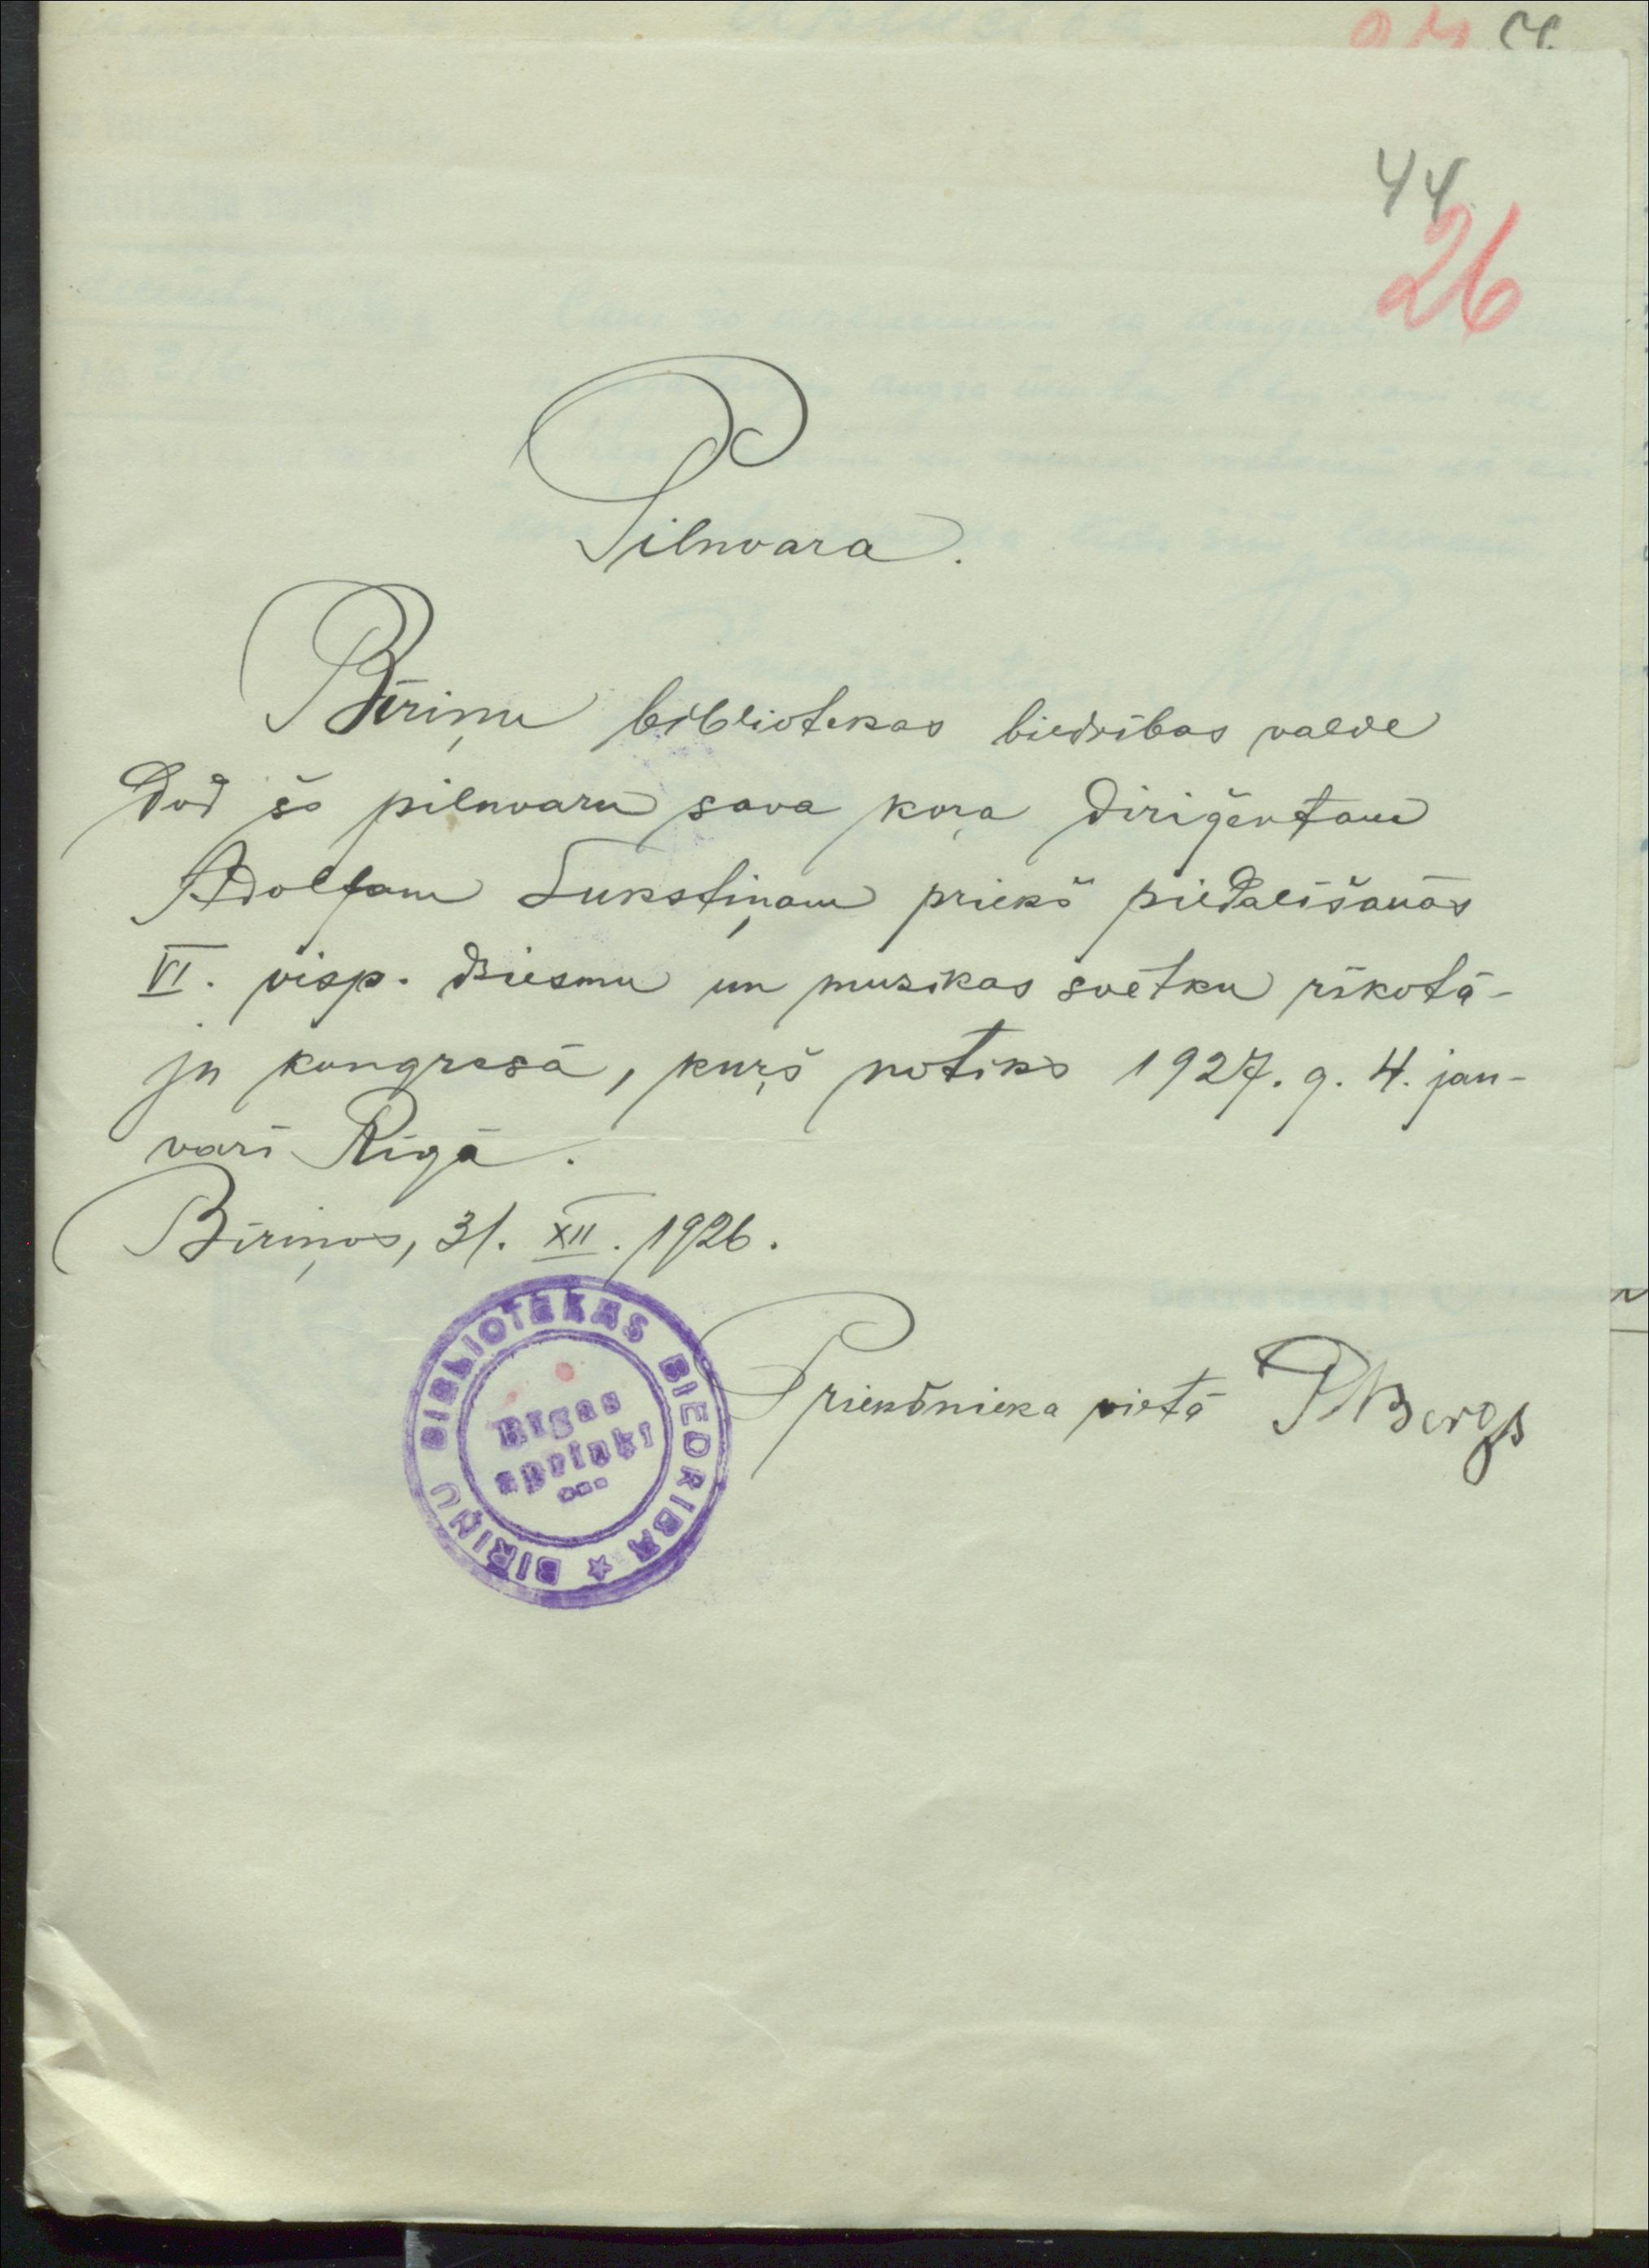 44
26
Pilnvara.
Bīriņu bibliotekas biedrības valde
dod šo pilnvaru sava koŗa diriģentam
Adolfam Lukstiņam priekš piedalīšanās
VI. visp. dziesmu un muzikas svētku rīkotā-
ju kongresā, kuŗš notiks 1927. g. 4. jan-
varī Rīgā.
Bīriņos, 31. XII. 1926.
BIRIŅU BIBLIOTEKAS BIEDRIBA
Rīgas
apriņķī
Priekšnieka vietā P. Bergs